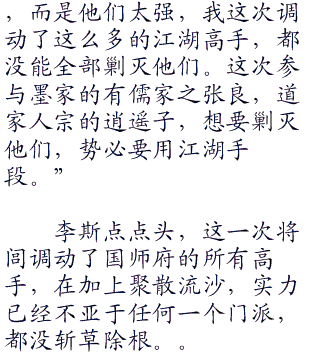 ，而是他们太强，我这次调
动了这么多的江湖高手，都
没能全部剿灭他们。这次参
与墨家的有儒家之张良，道
家人宗的逍遥子，想要剿灭
他们，势必要用江湖手
段。”
李斯点点头，这一次将
闾调动了国师府的所有高
手，在加上聚散流沙，实力
已经不亚于任何一个门派，
都没斩草除根。。